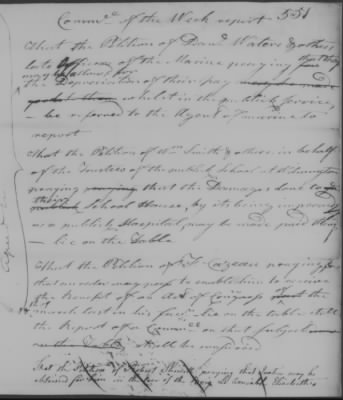 Comme.e of the Week report - 551
That the Petition of Danl. Waters & others
late Officers of the Marine praying that they
may be allowed for
the Depreciation of their pay whilst in the publick service,
- be referred to the Agent of marine to
report
That the Petition of Wm. Smith & others in behalf
of the Trustees of the publick School at Wilmington
praying that the Damages done to
their
School House, by its being improved
as a publick Hospital, may be made paid them
- lie on the Table
That the Petition of J. praying
that an order may pass to enable him to receive
the benefit of an Act of Congress of the
March last in his favr. lie on the table till
the Report of a Comme.ee on that subject
on the Table shall be
That the Petition of Robert praying that may be
obtained for him in the
Agreed to